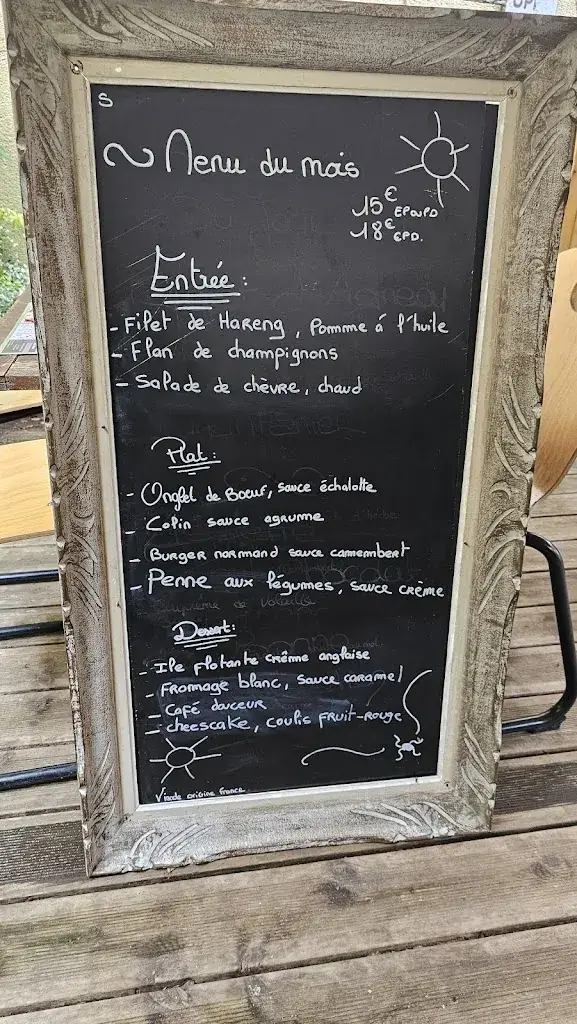 S
Menu du mois
15€ EPOUPD
18€ EPD.
Entrée :
- Filet de Hareng, Pomme á l'huile
- Flan de champignons
- Salade de chèvre, chaud
Plat :
- Onglet de Boeuf, sauce échalotte
- Colin sauce agrume
- Burger normand sauce camembert
- Penne aux légumes, sauce crème
Dessert :
- Ile flotante crême anglaise
- Fromage blanc, sauce caramel
- Café douceur
- cheescake, coulis fruit-rouge
Viande origine france